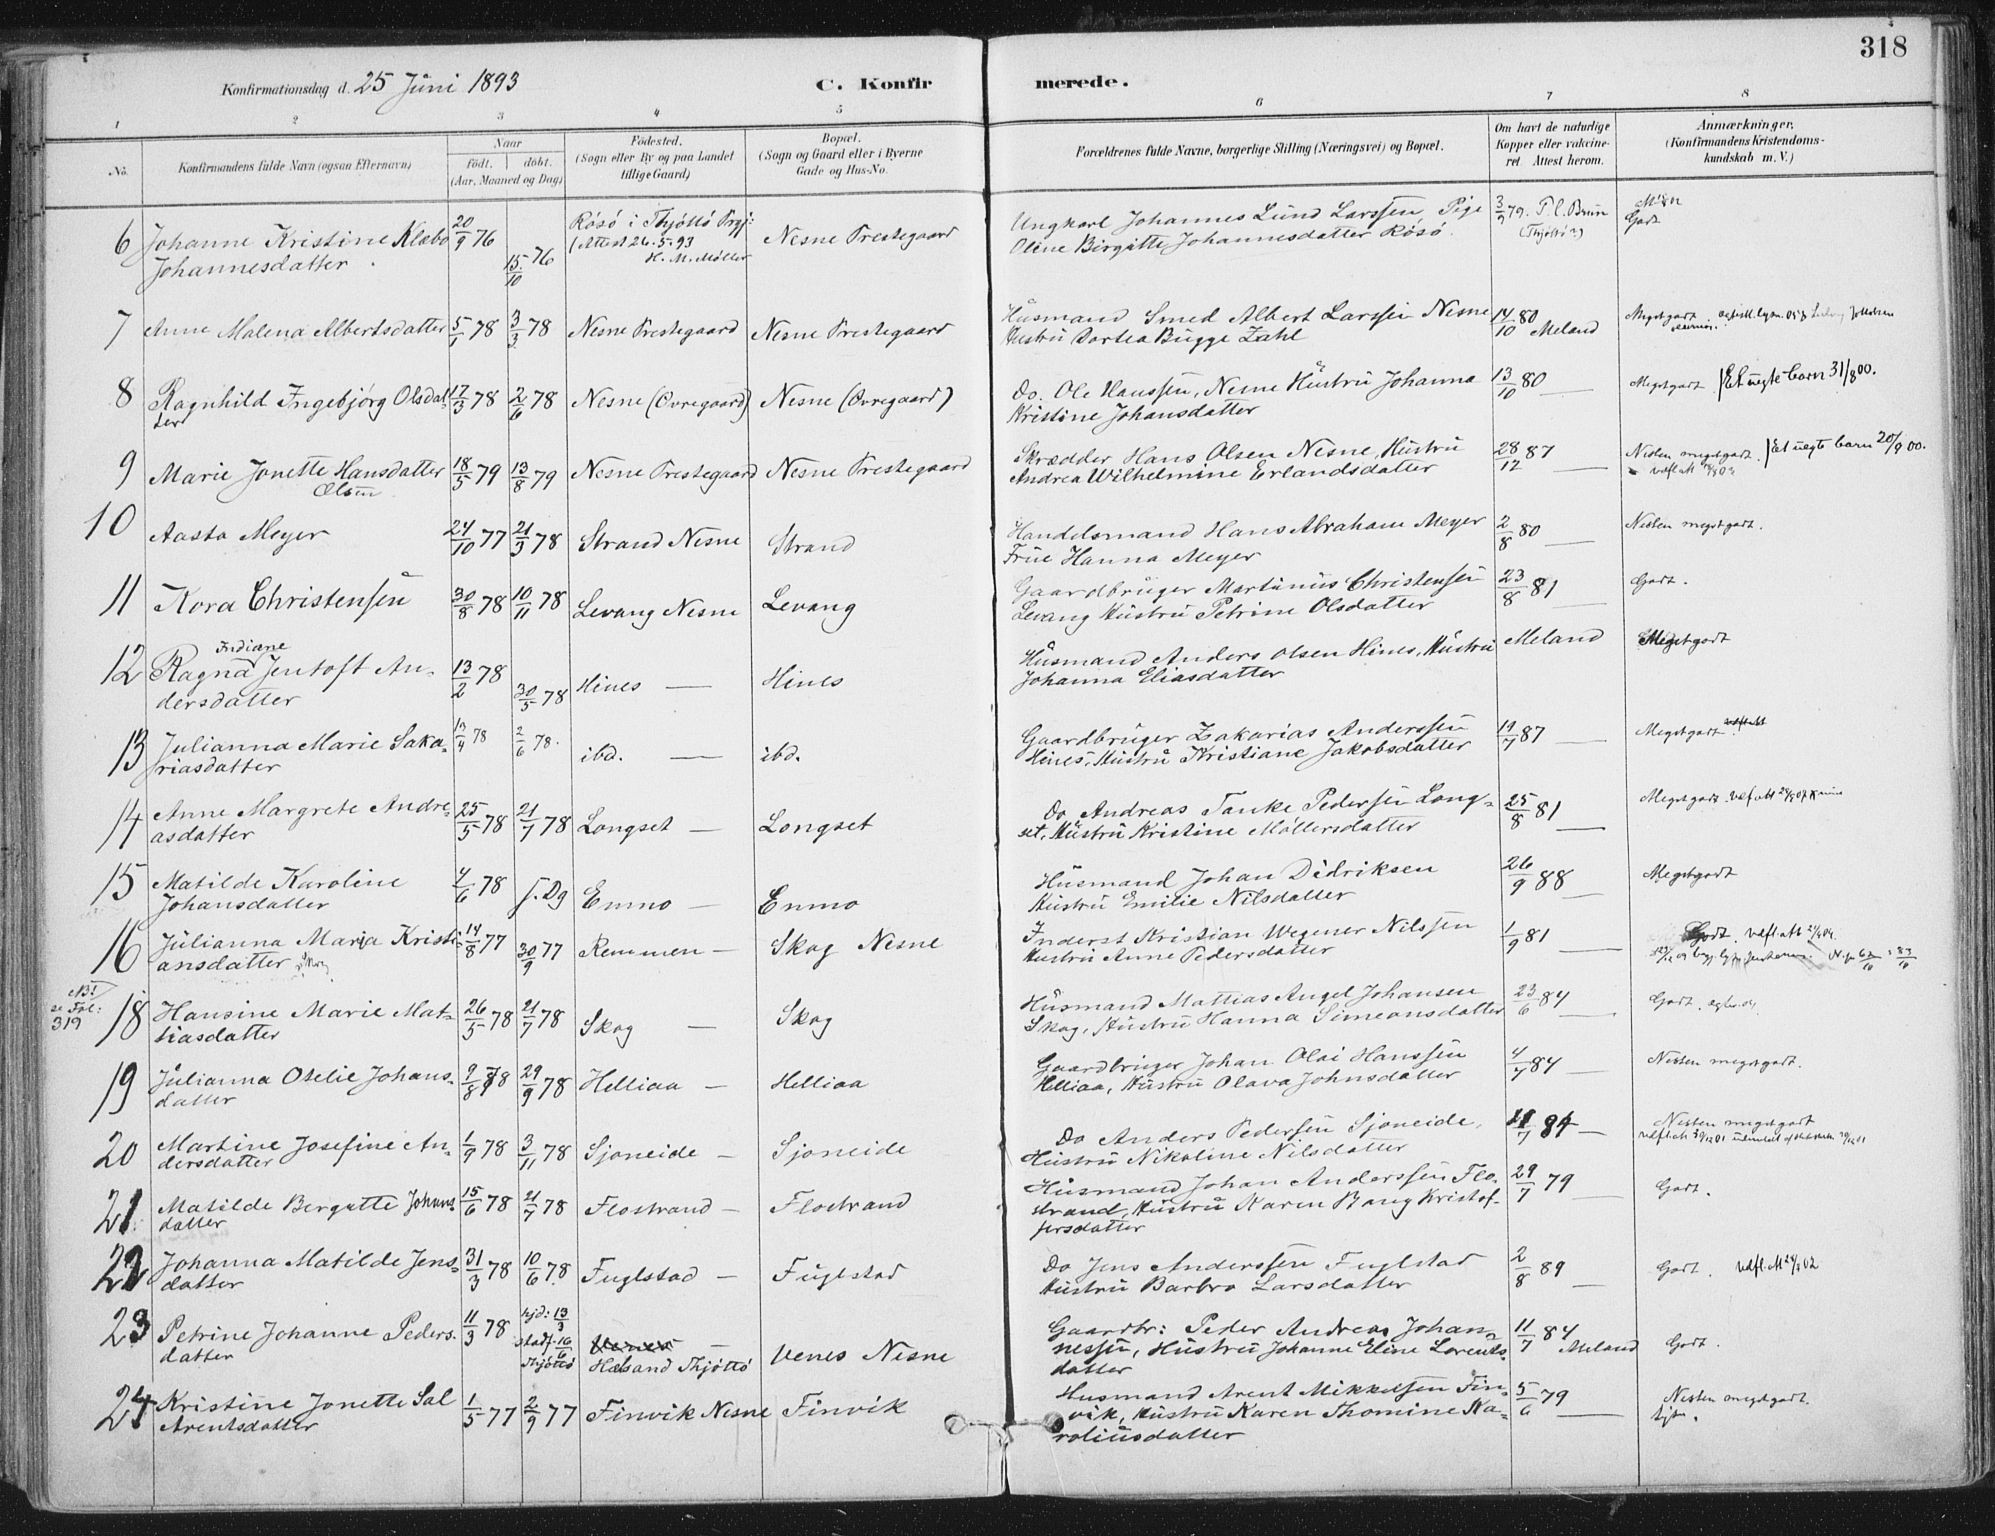 318
Konfirmationsdag d. 25 Juni 1893
C. Konfirmerede.
1 2 3 4 5 6 7 8
No.
Konfirmandens fulde Navn (ogsaa Efternavn)
Naar
født. døbt.
(Aar, Maaned og Dag)
Fødested.
(Sogn eller By og paa Landet
tillige Gaard)
Bopæl.
(Sogn og Gaard eller i Byerne
Gade og Hus-No.
Forældrenes fulde Navne, borgerlige Stilling (Næringsvei) og Bopæl.
Om havt de naturlige
Kopper eller vakcine-
ret. Attest herom.
Anmærkninger.
(Konfirmandens Kristendoms-
kundskab m. V.)
6 Johanne Kristine Klæbo 20/9 76 Røsø i Thjøttø Prgj: Nesne Prestegaard Ungkarl Johannes Lund Larssen, Pige 3/9 79. Godt
Johannesdatter 15/10 76 (Attest 26.5.93 H. M. Møller Oline Birgitte Johannesdatter Røsø.
7 Anne Malena Albertsdatter 5/1 78 3/3 78 Nesne Prestegaard Nesne Prestegaard Husmand Smed Albert Larssen Nesne 14/10 80 Meland Megetgodt
Hustru Dortea Bugge Zahl
8 Ragnhild Ingebjørg Olsdat- 17/3 78 2/6 78 Nesne (Øvregaard) Nesne (Øvregaard) Do. Ole Hanssen, Nesne Hustru Johanna 13/10 80 — Megetgodt Et uegte barn 31/8 00.
ter Kristine Johansdatter
9 Marie Jonette Hansdatter 18/5 79 13/8 79 Nesne Prestegaard Nesne Prestegaard Skrædder Hans Olsen Nesne, Hustru 28/12 87 — Nesten megetgodt. Et uegte barn 20/9 00.
Olsen Andrea Wilhelmine Erlandsdatter
10 Aasta Meyer 24/10 77 21/3 78 Strand Nesne Strand Handelsmand Hans Abraham Meyer 2/8 80 — Nesten megetgodt.
Frue Hanna Meyer
11 Kora Christensen 30/8 78 10/11 78 Levang Nesne Levang Gaardbruger Martinus Christensen 23/8 81 — Godt.
Levang Hustru Petrine Olsdatter
12 Ragna Indiane Jentoft An- 13/2 78 30/5 78 Hines — Hines Husmand Anders Olsen Hines, Hustru Meland Megetgodt
dersdatter Johanna Eliasdatter
13 Julianna Marie Saka- 13/4 78 2/6 78. ibd. — ibd. Gaardbruger Zakarias Anderssen 19/7 87 — Megetgodt
riasdatter Hines, Hustru Kristiane Jakobsdatter
14 Anne Margrete Andre- 25/5 78 21/7 78 Longset — Longset Do Andreas Tanke Pedersen Long- 25/8 81 — Megetgodt
asdatter set, Hustru Kristine Møllersdatter
15 Matilde Karoline 4/6 78 s. Dg Enmo — Enmo Husmand Johan Didriksen 26/9 88 — Megetgodt
Johansdatter Hustru Emilie Nilsdatter
16 Julianna Marja Kristi- 14/8 77 30/9 77 Remmen — Skog Nesne Inderst Kristian Wegener Nilssen 1/9 81 — Godt.
ansdatter Hustru Anne Pedersdatter
NB! se Fol: 319
18 Hansine Marie Mat- 26/5 78 21/7 78 Skog — Skog Husmand Mattias Angel Johansen 23/6 84 — Godt.
tiasdatter Skog, Hustru Hanna Simeonsdatter
19 Julianna Otelie Johans- 9/8 78 29/9 78 Helliaa — Helliaa Gaardbruger Johan Olai Hanssen 4/7 84 — Nesten megetgodt.
datter Helliaa, Hustru Olava Johnsdatter
20 Martine Josefine An- 1/9 78 3/11 78 Sjoneide — Sjoneide Do Anders Pedersen Sjoneide, 11/7 84 — Nesten megetgodt
dersdatter Hustru Nikoline Nilsdatter
21 Matilde Bergitte Johans- 15/6 78 21/7 78 Flostrand — Flostrand Husmand Johan Anderssen Flo- 29/7 79 — Godt.
datter strand, Hustru Karen Bang Kristof-
fersdatter
22 Johanna Matilde Jens- 31/3 78 10/6 78. Fuglstad — Fuglstad Do Jens Anderssen Fuglstad 2/8 89 — Godt.
datter Hustru Barbro Larsdatter
23 Petrine Johanne Peders- 11/3 78 hjd: 13/3 stadf. 16/6 Thjøttø Venes — Hæsand Thjøttø Venes Nesne Gaardbr: Peder Andreas Johan- 11/7 84 Meland Godt.
datter nessen, Hustru Johanne Eline Lorents-
datter
24 Kristine Jonette Sal 1/5 77 2/9 77 Finvik Nesne Finvik Husmand Arent Mikkelsen Fin- 5/6 79 — Nesten megetgodt.
Arentsdatter vik, Hustru Karen Thomine Ka-
roliusdatter